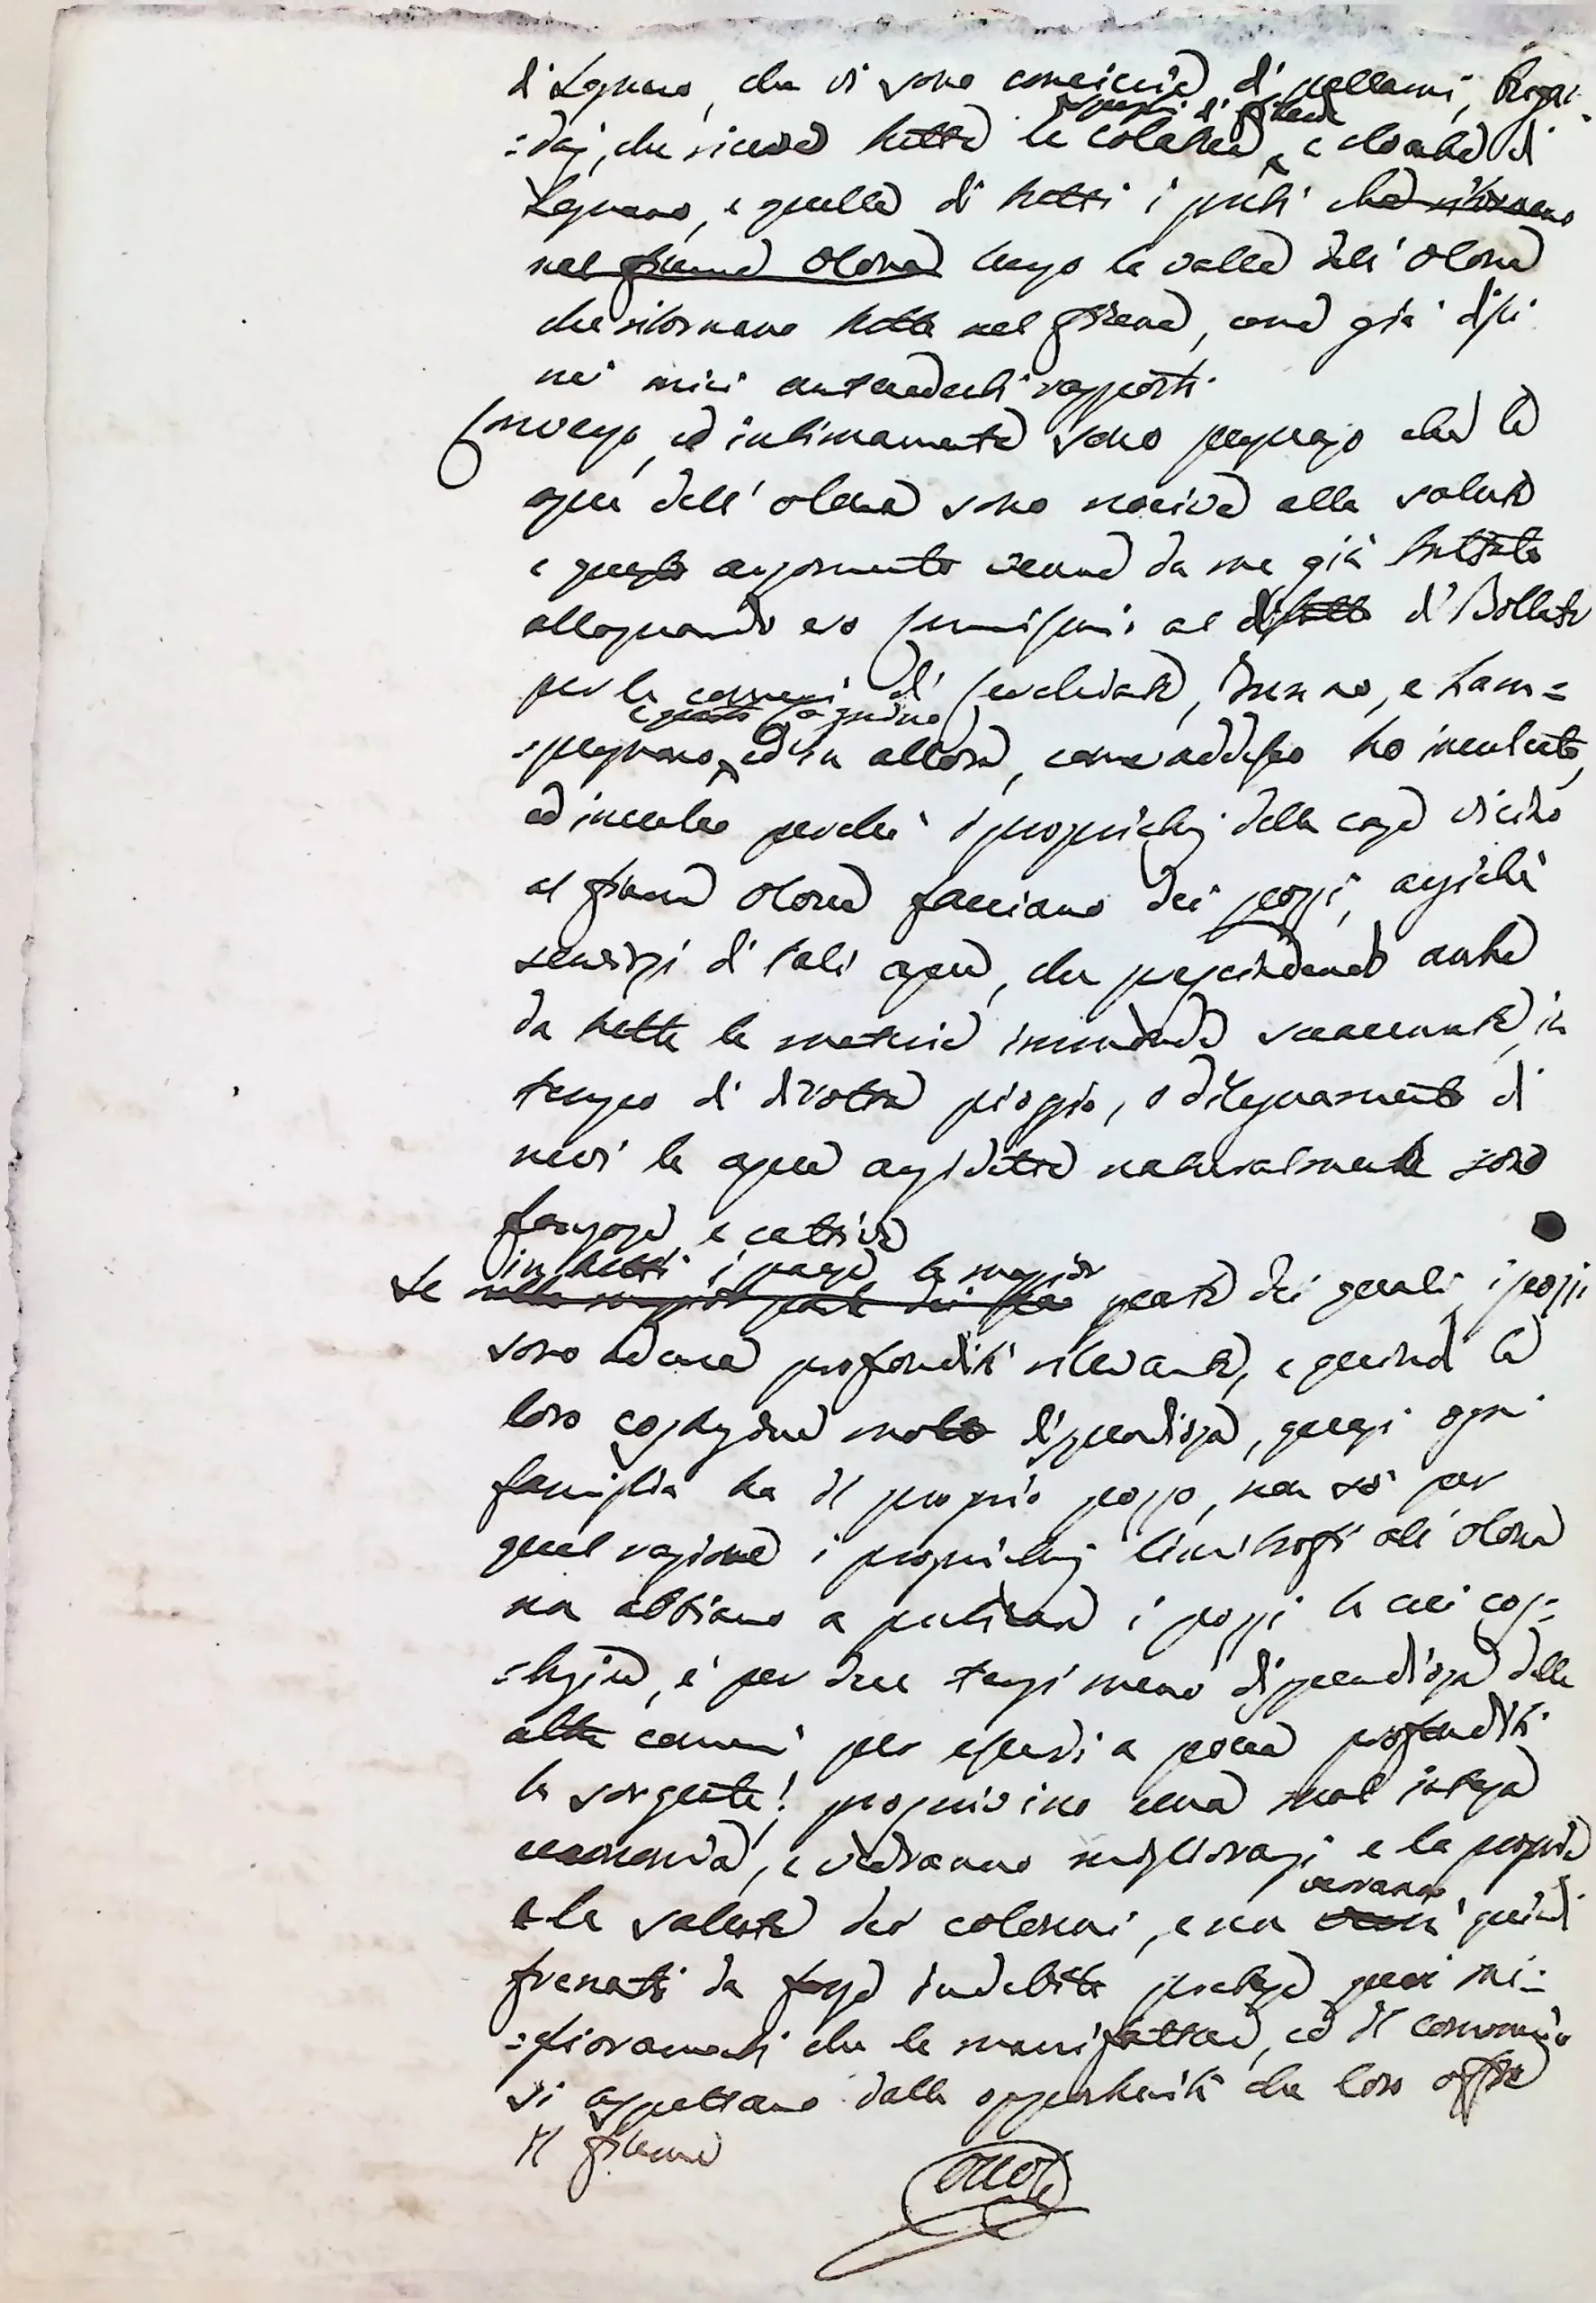 di Legnano, che vi sono concierie di pellami,
che riceve tutte le colature, e cloache di
Legnano, e quelle di tutti i prati che ritornano
nel fiume Olona lungo la valle dell'Olona
che ritornano tutte nel fiume, come già dissi
nei miei antecedenti rapporti.
Convengo, ed intimamente sono persuaso che le
acque dell'Olona sono nocive alla salute
e questo argomento venne da me già trattato
allorquando ero al distretto di Bollate
per le comuni di Cerchiate, e Pam=
e questo
=pegnano, ed in allora, come addesso ho inculcato,
ed inculco perché i proprietarj delle case vicino
al fiume Olona facciano dei pozzi, anziché
servirsi di tali acque, che prescindendo anche
da tutte le materie immonde in
tempo di dirotta pioggia, o dileguamento di
nevi le acque anzidette naturalmente sono
fangose, e cattive
in tutti i paesi la maggior
Se nella maggior parte dei parte dei quali i pozzi
sono ad una profondità rilevante, e quindi la
loro costruzione molto dispendiosa, quasi ogni
famiglia ha il proprio pozzo, non so per
qual ragione i proprietarj limitrofi all'Olona
non abbiano a praticare i pozzi la cui cos=
=truzione, è per due terzi meno dispendiosa delle
altre comuni per esservi a poca profondità
la sorgente!
economia, e vedranno migliorarsi e la propria
verranno
e la salute dei coloni, e non quindi
frenati da forse indebite pretese quei mi=
=glioramenti che le manifatture, ed il commercio
si aspettano dalle opportunità che loro offre
il fiume